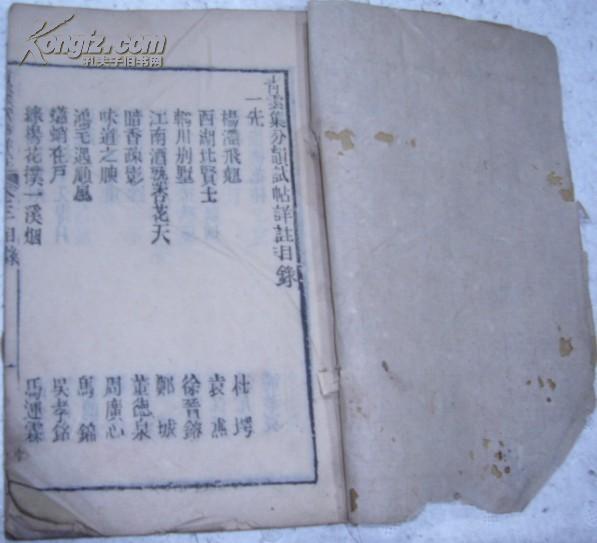 Kongfz.com
孔夫子旧书网
青雲集分韻試帖詳註目錄
一先
飛翹 杜堮
西湖比賢士 袁
輞川別墅 徐晉鎔
江南酒熟杏花天 鄭城
暗香疎影 董德泉
味道之腴 周廣心
鴻毛遇順風
蠨蛸在戶 吳孝銘
綠楊花撲一溪烟 馬運霖
卷三 目錄